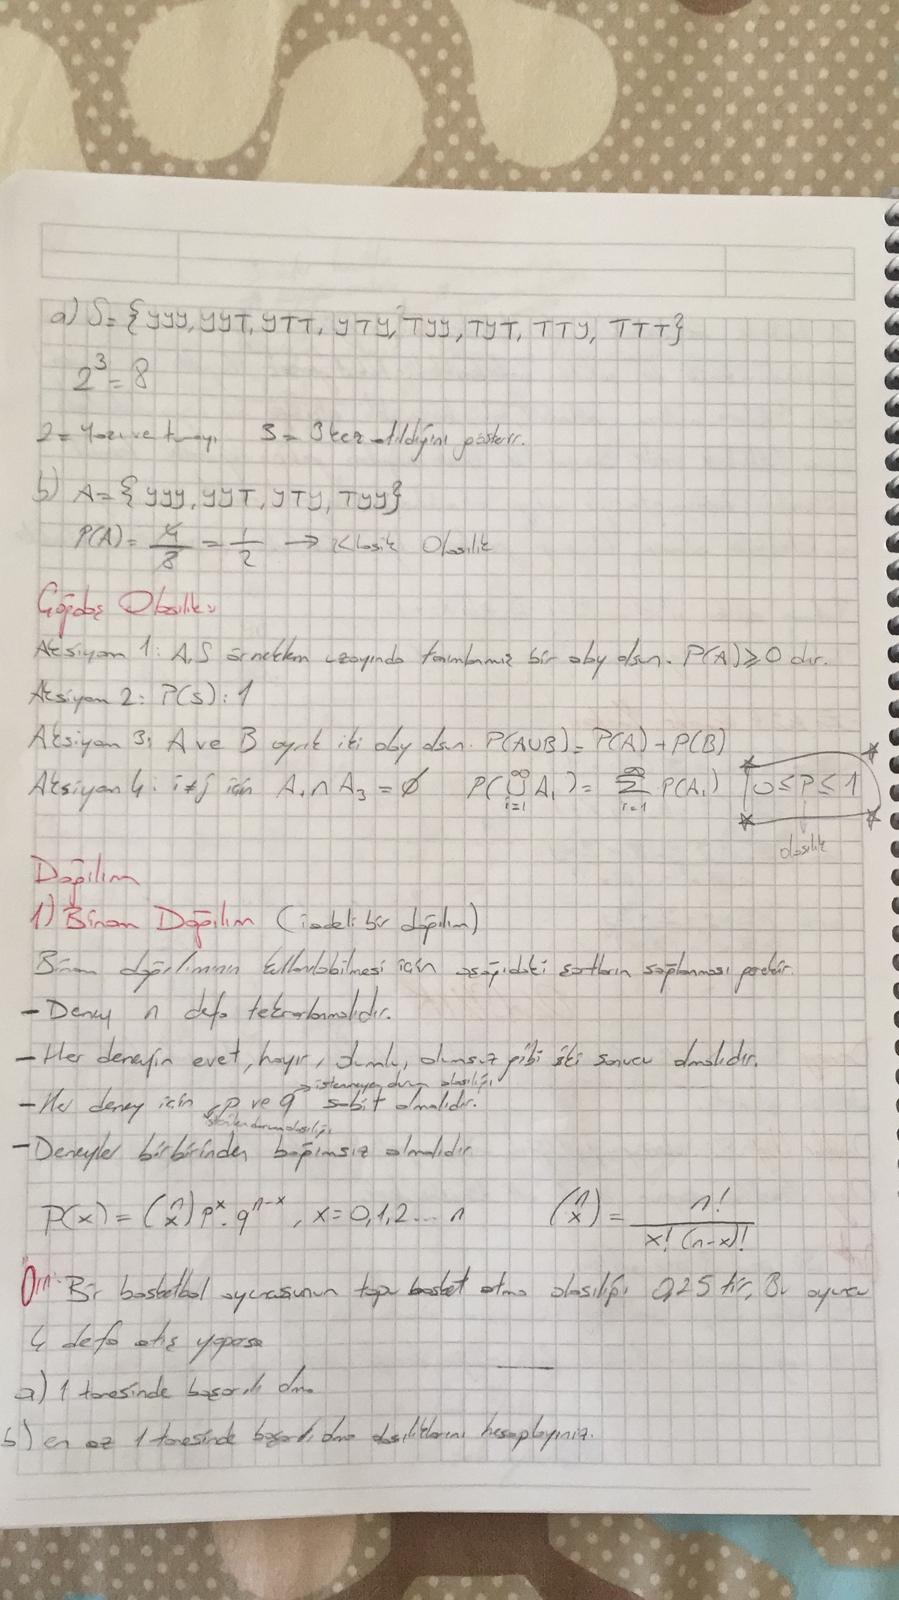 a) S= {YYY, YYT, YTT, YTY, TYY, TYT, TTY, TTT}
2³ = 8
2 = Yazı ve turayı 3 = 3 kez atıldığını gösterir.
b) A = {YYY, YYT, YTY, TYY}
P(A) = 4/8 = 1/2 → Klasik Olasılık
Çağdaş Olasılık:
Aksiyom 1: A, S örneklem uzayında tanımlanmış bir olay olsun. P(A) ≥ 0 dır.
Aksiyom 2: P(S) : 1
Aksiyom 3: A ve B ayrık iki olay olsun. P(A∪B) = P(A) + P(B)
Aksiyom 4: i≠j için A₁ ∩ A₃ = ∅ P(∞∪i=1 A₁) = ∞Σi=1 P(A₁) 0 ≤ P ≤ 1
olasılık
Dağılım
1) Binom Dağılım (iadeli bir dağılım)
Binom dağılımının kullanılabilmesi için aşağıdaki şartların sağlanması gerekir.
- Deney n defa tekrarlanmalıdır.
- Her deneyin evet, hayır, olumlu, olumsuz gibi iki sonucu olmalıdır.
→ istenmeyen durum olasılığı
- Her deney için p ve q sabit olmalıdır.
istenilen durum olasılığı
- Deneyler birbirinden bağımsız olmalıdır
P(x) = (n x) pˣ . qⁿ⁻ˣ, x = 0,1,2... n (n x) = n! / x! (n-x)!
Örn: Bir basketbol oyuncusunun topu basket atma olasılığı 0,25 tir, Bu oyuncu
4 defa atış yaparsa
a) 1 tanesinde başarılı olma
b) en az 1 tanesinde başarılı olma olasılıklarını hesaplayınız.